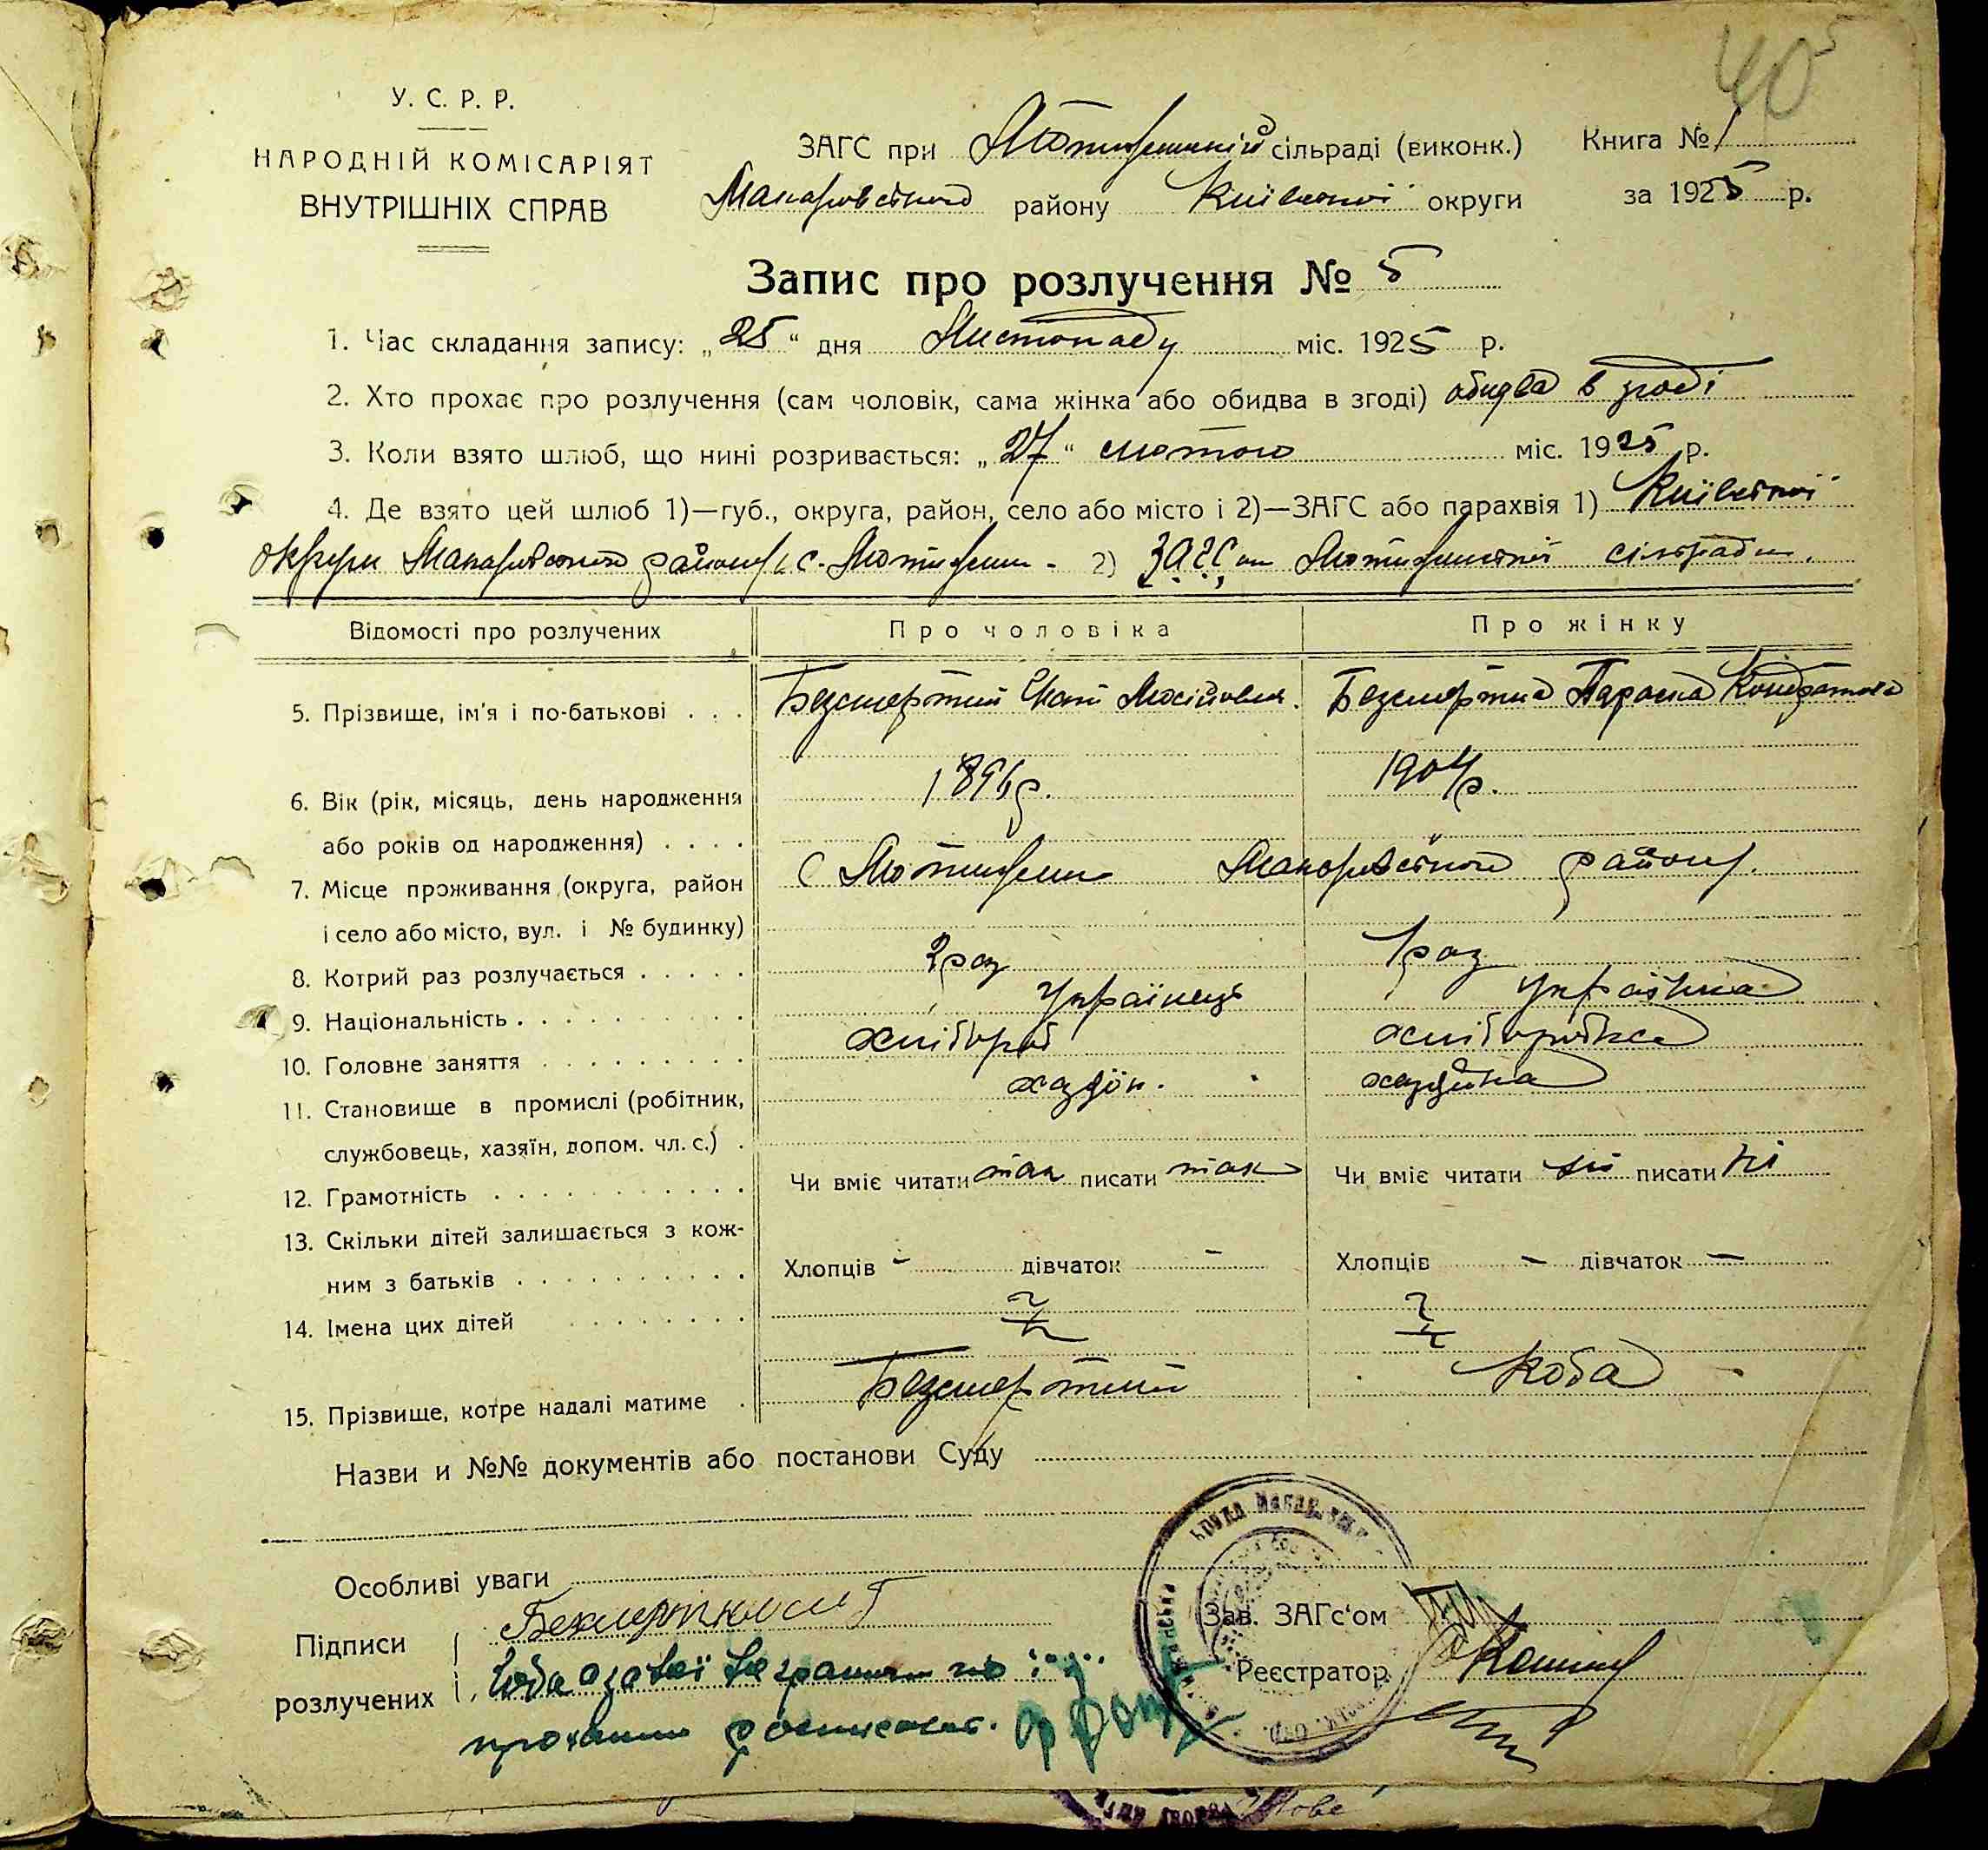 40 5
У. С. Р. Р.
НАРОДНІЙ КОМІСАРІЯТ
ВНУТРІШНІХ СПРАВ
ЗАГС при Мотижинській сільраді (виконк.) Книга № 1
Макарівського району Київської округи за 1925 р.
Запис про розлучення № 5
1. Час складання запису: „25“ дня Листопаду міс. 1925 р.
2. Хто прохає про розлучення (сам чоловік, сама жінка або обидва в згоді) обидва в згоді
3. Коли взято шлюб, що нині розривається: „27“ лютого міс. 1925 р.
4. Де взято цей шлюб 1)—губ., округа, район, село або місто і 2)—ЗАГС або парахвія 1) Київської
округи Макарівського району с. Мотижин - 2) ЗАГС Мотижинської сільради.
Відомості про розлучених Про чоловіка Про жінку
5. Прізвище, ім'я і по-батькові . . . Безсмертний Безсмертна Параска Кондратова
6. Вік (рік, місяць, день народження 1896 р. 1904 р.
або років од народження) . . . .
7. Місце проживання (округа, район с Мотижин Макарівського району.
і село або місто, вул. і № будинку)
8. Котрий раз розлучається . . . . . 2 раз 1 раз
9. Національність . . . . . . . . . . Українець Українка
10. Головне заняття . . . . . . . . хлібороб хліборобка
11. Становище в промислі (робітник, хазяїн. хазяйка
службовець, хазяїн, допом. чл. с.) .
12. Грамотність . . . . . . . . . . . Чи вміє читати так писати так Чи вміє читати ні писати ні
13. Скільки дітей залишається з кож-
ним з батьків . . . . . . . . . . Хлопців - дівчаток - Хлопців - дівчаток -
14. Імена цих дітей . . . . . . . .
15. Прізвище, котре надалі матиме . Безсмертний Коба
Назви и №№ документів або постанови Суду
Особливі уваги
Підписи
розлучених
Коба а за неї неграмотн по її
проханню росписався.
Зав. ЗАГс‘ом
Реєстратор